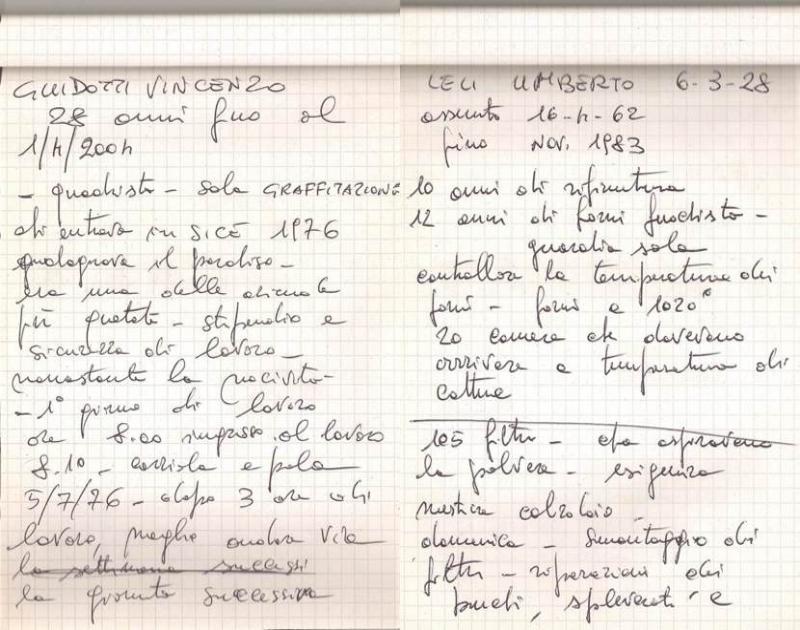 GUIDOTTI VINCENZO
28 anni fino al
1/4/2004
- quadista - sala GRAFFITAZIONE
chi entrava in SICE 1976
guadagnava il paradiso -
era una delle aziende
più quotate - stipendio e
sicurezza di lavoro -
nonostante la nocività -
- 1° giorno di lavoro
ore 8.00 ingresso al lavoro
8.10 - carriola e pala
5/7/76 - dopo 3 ore di
lavoro, voglio andar via
la settimana successi
la giornata successiva
LELI UMBERTO 6-3-28
assunto 16-4-62
fino NOV. 1983
10 anni di rifinitura
12 anni di forni fuochista -
guardia sala
controllava la temperatura dei
forni - forni a 1020°
20 camere che dovevano
arrivare a temperatura di
cottura
105 filtri - che aspiravano
la polvere - esigenza
mestiere calzolaio -
domenica - smontaggio di
filtri - riparazioni dei
buchi, e